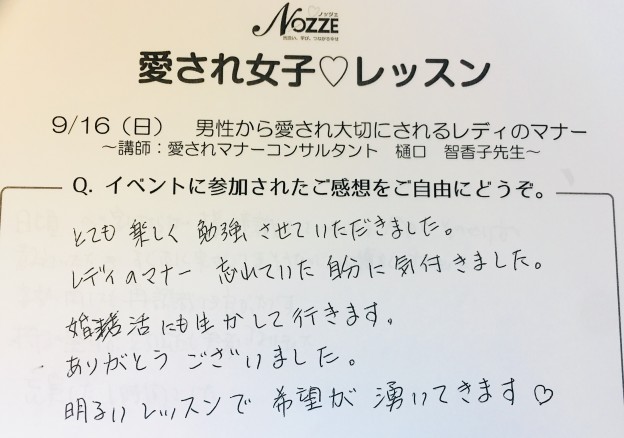 ノッツェ
NOZZE
出会い、学び、つながる幸せ
愛され女子♡レッスン
9/16(日) 男性から愛され大切にされるレディのマナー
～講師:愛されマナーコンサルタント 樋口 智香子先生～
Q. イベントに参加されたご感想をご自由にどうぞ。
とても楽しく勉強させていただきました。
レディのマナー 忘れていた自分に気付きました。
婚活にも生かして行きます。
ありがとうございました。
明るいレッスンで希望が湧いてきます♡